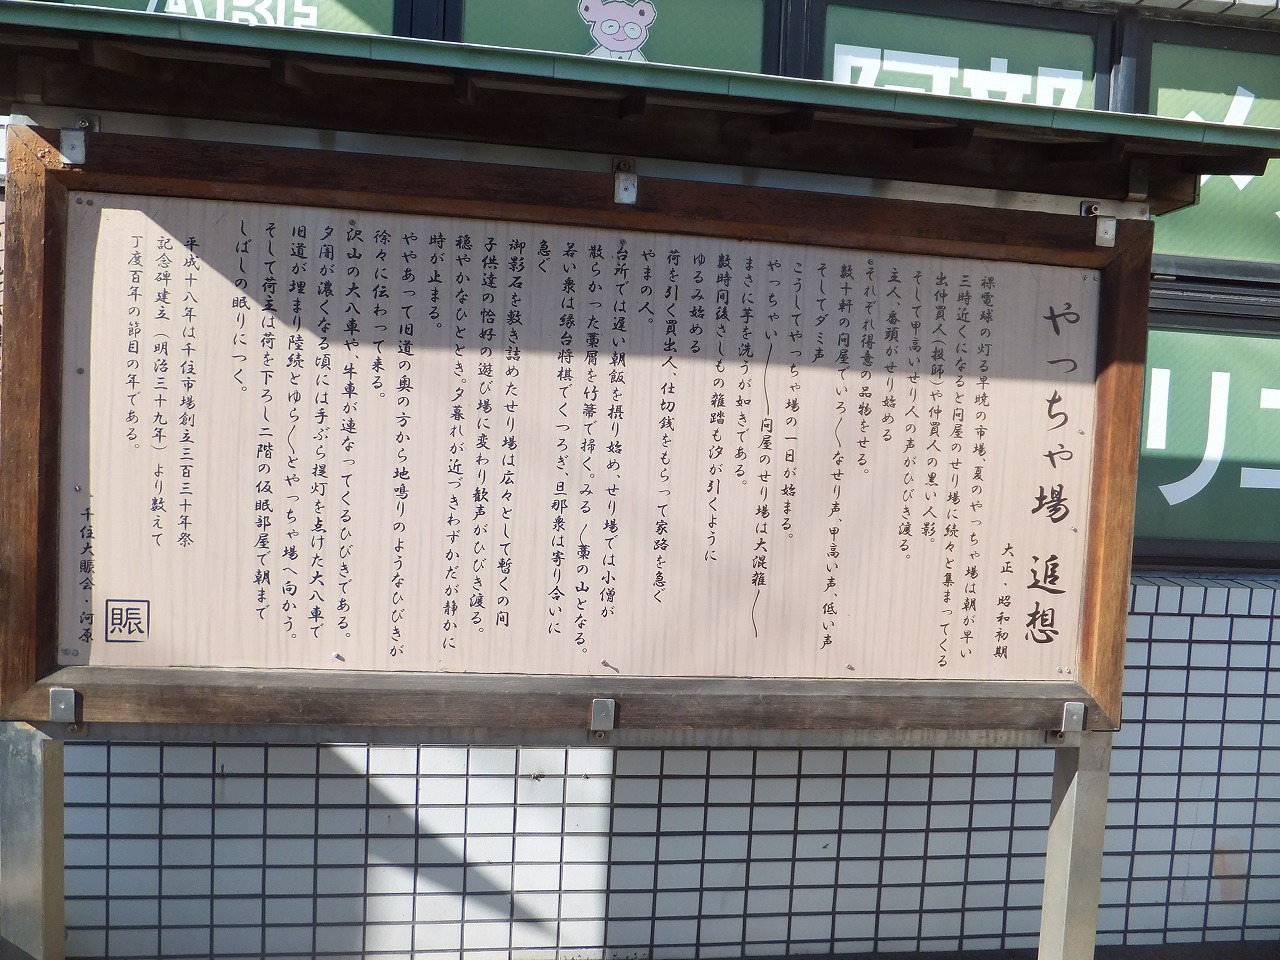 やっちゃ場 追想
大正・昭和初期
裸電球の灯る早暁の市場、夏のやっちゃ場は朝が早い
三時近くになると問屋のせり場に続々と集まってくる
出仲買人(投師)や仲買人の黒い人影。
そして甲高いせり人の声がひびき渡る。
主人、番頭がせり始める
それぞれ得意の品物をせる。
数十軒の問屋でいろ〱なせり声、甲高い声、低い声
そしてダミ声
こうしてやっちゃ場の一日が始まる。
やっちゃい――問屋のせり場は大混雑――
まさに芋を洗うが如きである。
数時間後さしもの雑踏も汐が引くように
ゆるみ始める
荷を引く買出人、仕切銭をもらって家路を急ぐ
やまの人。
台所では遅い朝飯を摂り始め、せり場では小僧が
散らかった藁屑を竹箒で掃く。みる〱藁の山となる。
若い衆は縁台将棋でくつろぎ、旦那衆は寄り合いに
急ぐ
御影石を敷き詰めたせり場は広々として暫くの間
子供達の恰好の遊び場に変わり歓声がひびき渡る。
穏やかなひととき。夕暮れが近づきわずかだが静かに
時が止まる。
ややあって旧道の奥の方から地鳴りのようなひびきが
徐々に伝わって来る。
沢山の大八車や、牛車が連なってくるひびきである。
夕闇が濃くなる頃には手ぶら提灯を点けた大八車で
旧道が埋まり陸続とゆら〱とやっちゃ場へ向かう。
そして荷主は荷を下ろし二階の仮眠部屋で朝まで
しばしの眠りにつく。
平成十八年は千住市場創立三百三十年祭
記念碑建立(明治三十九年)より数えて
丁度百年の節目の年である。
千住大賑会・河原
賑
ABE
阿部
メ
リニ